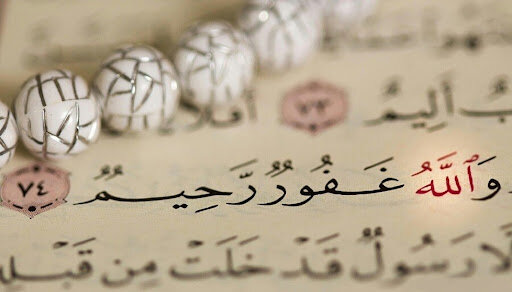 أَلِيمٌ ٧٣ أَفَلَا
وَٱللَّهُ غَفُورٌ رَّحِيمٌ ٧٤
رَسُولٌ قَدْ خَلَتْ مِن قَبْلِهِ